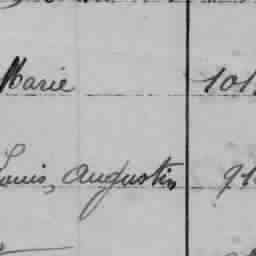 Marie 101
Louis, Augustin, 91